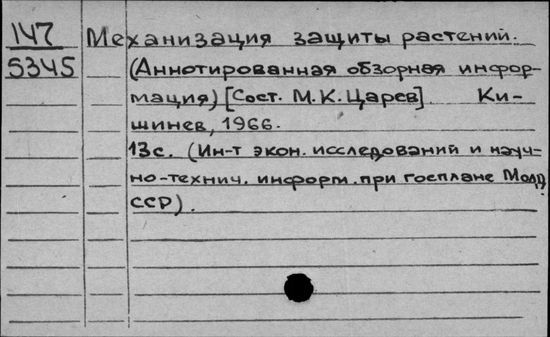 147 Механизация защиты растений.
5345 (Аннотированная обзорная инфор-
мация) [Сост. М.К.Царев] Ки-
шинев, 1966.
13с. (Ин-т экон. исследований и науч-
но-технич. информ. при госплане Молд
ССР).